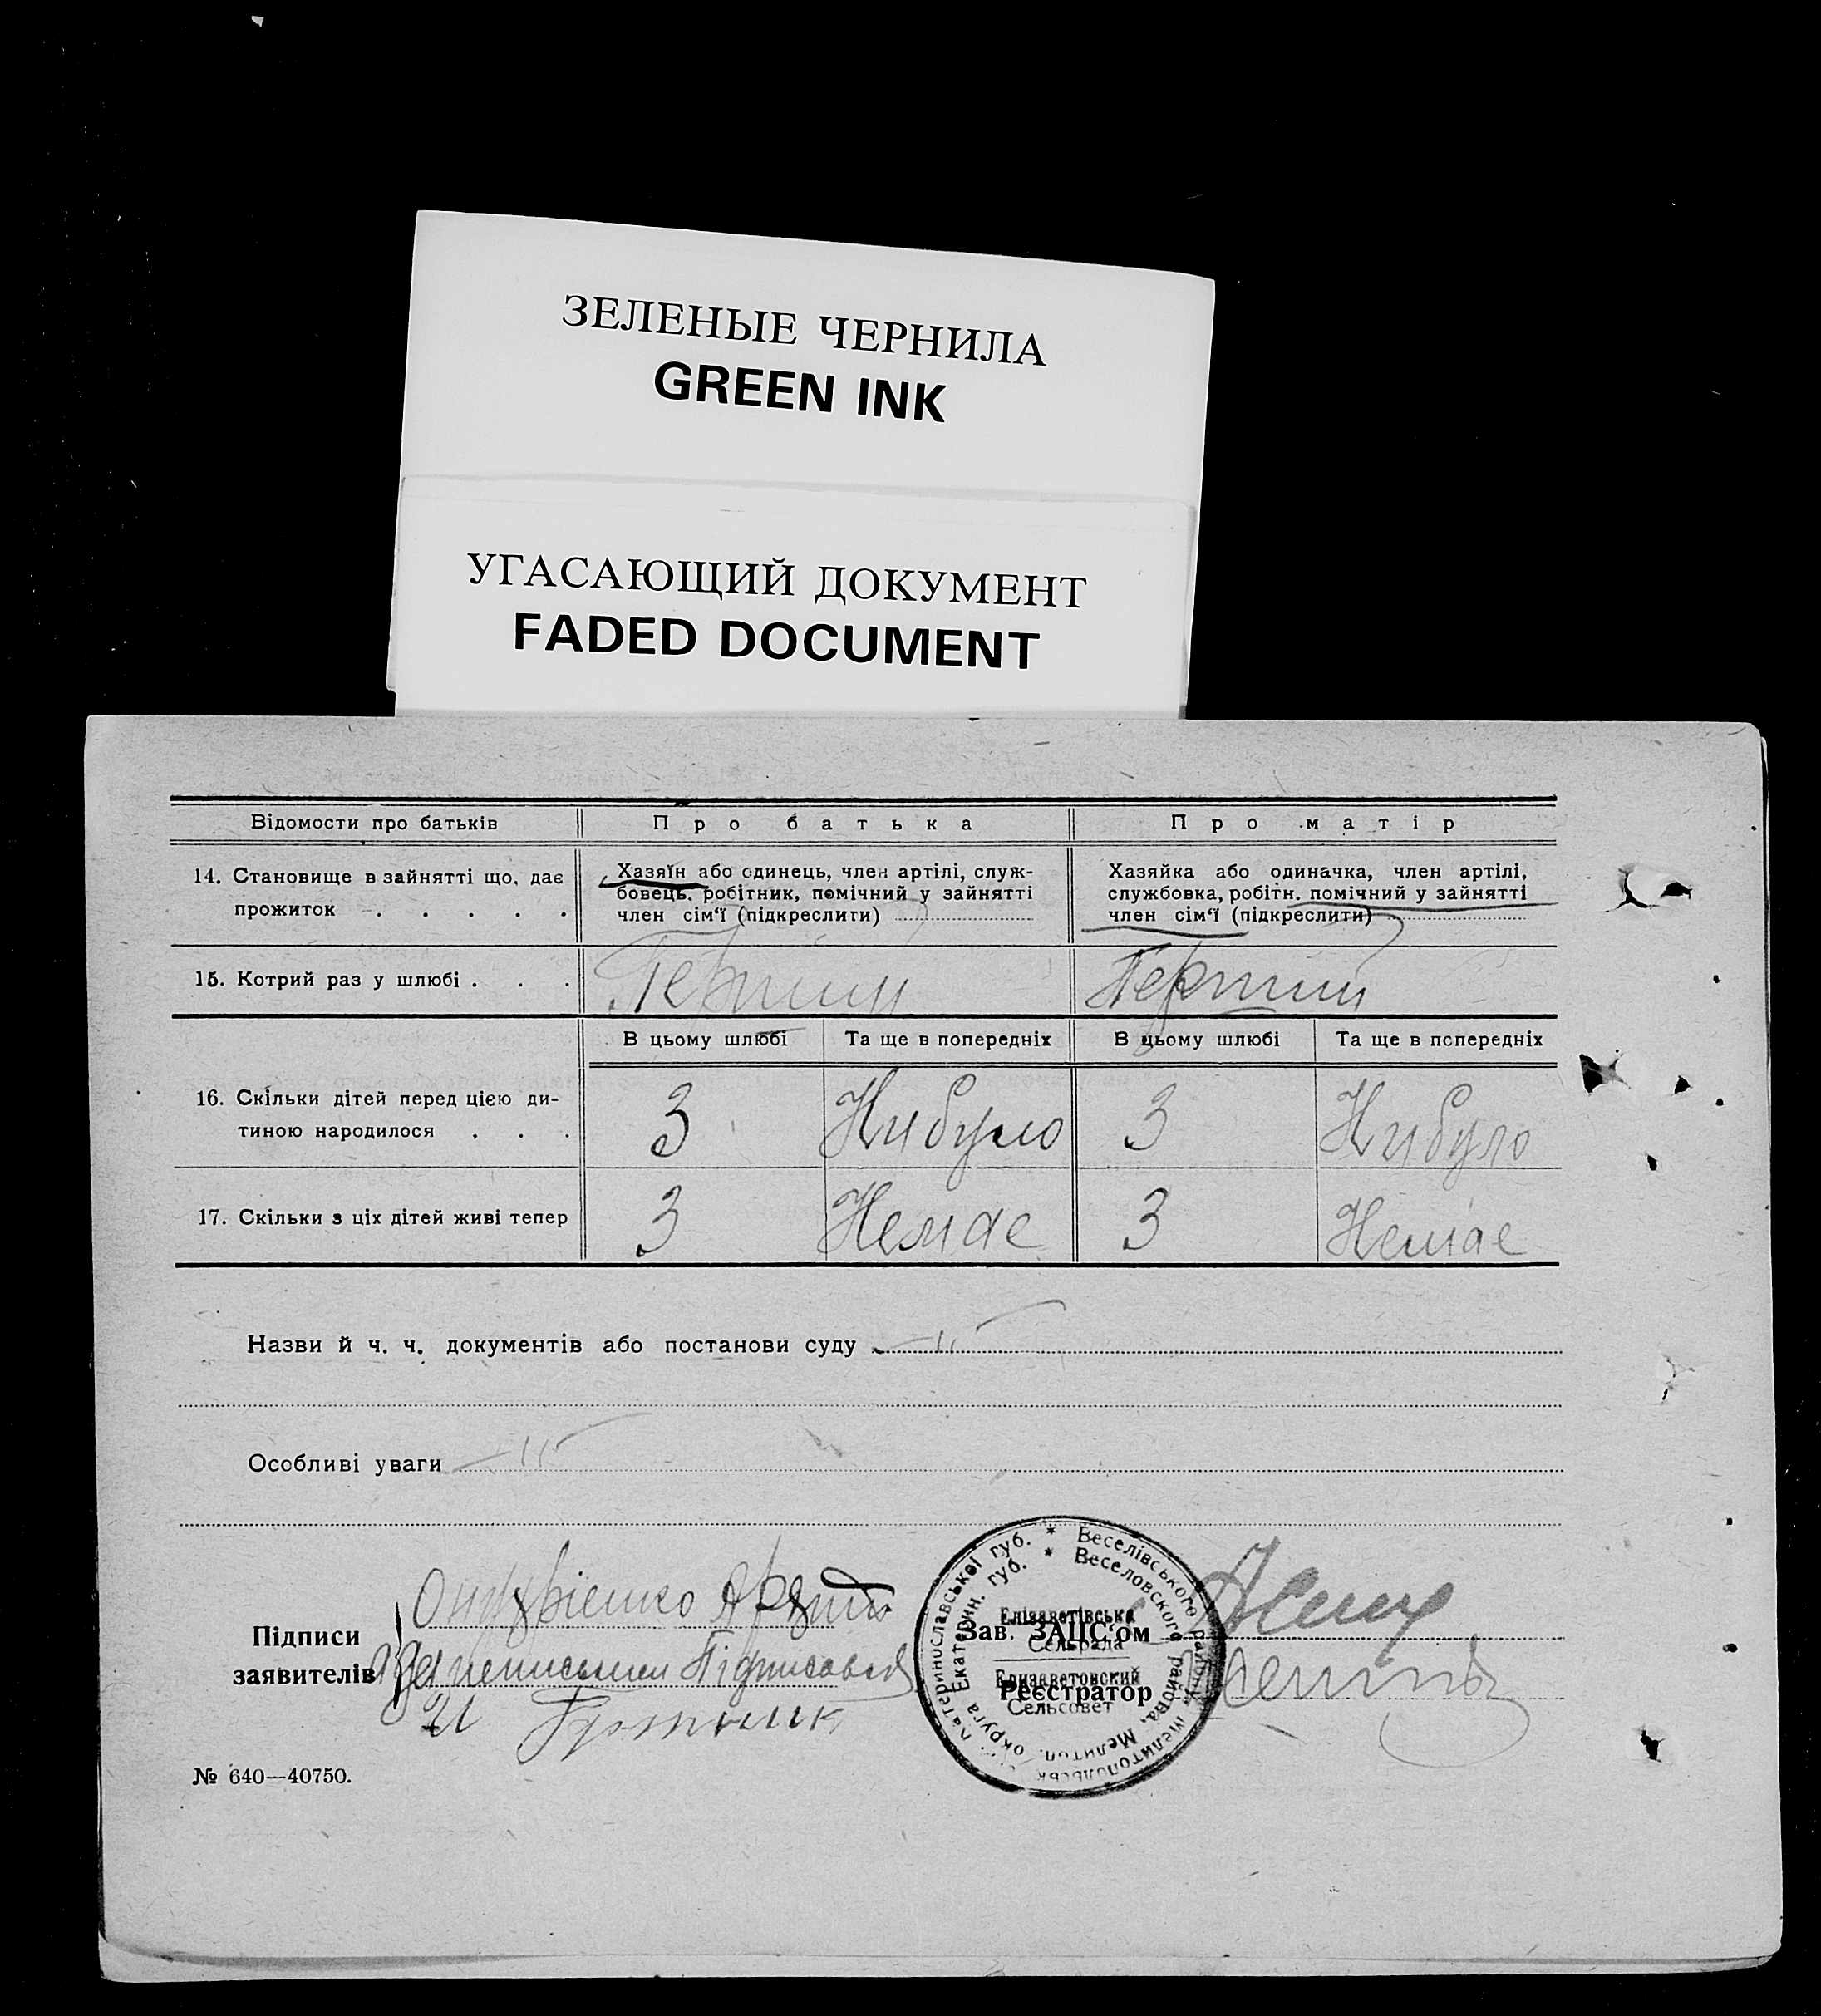 ЗЕЛЕНЫЕ ЧЕРНИЛА
GREEN INK
УГАСАЮЩИЙ ДОКУМЕНТ
FADED DOCUMENT
Відомости про батьків Про батька Про матір
14. Становище в зайнятті що, дає Хазяїн або одинець, член артілі, служ- Хазяйка або одиначка, член артілі,
прожиток . . . . . бовець, робітник, помічний у зайнятті службовка, робітн. помічний у зайнятті
член сім‘ї (підкреслити) член сім‘ї (підкреслити)
15. Котрий раз у шлюбі . . . Перший Перший
В цьому шлюбі Та ще в попередніх В цьому шлюбі Та ще в попередніх
16. Скільки дітей перед цією ди- 3 Нибуло 3 Нибуло
тиною народилося . . .
17. Скільки з ціх дітей живі тепер 3 Немае 3 Немае
Назви й ч. ч. документів або постанови суду —"—
Особливі уваги —"—
Підписи
заявителів
Зав. ЗАЦС‘ом
Реєстратор
Веселівського району Мелитопольськ округа Катеринославської губ. *
Веселовского района, Мелитоп. округа Екатерин. губ. *
Елізаветівська
Сельрада
Елизаветовский
Сельсовет
№ 640—40750.